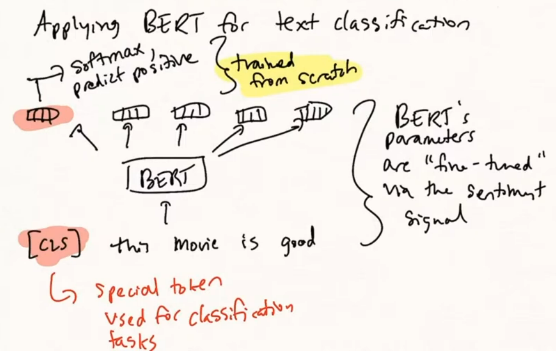 Applying BERT for text classification
softmax,
predict positive
trained
from scratch
BERT's
parameters
are "fine-tuned"
via the sentiment
signal
BERT
[CLS] this movie is good
special token
used for classification
tasks